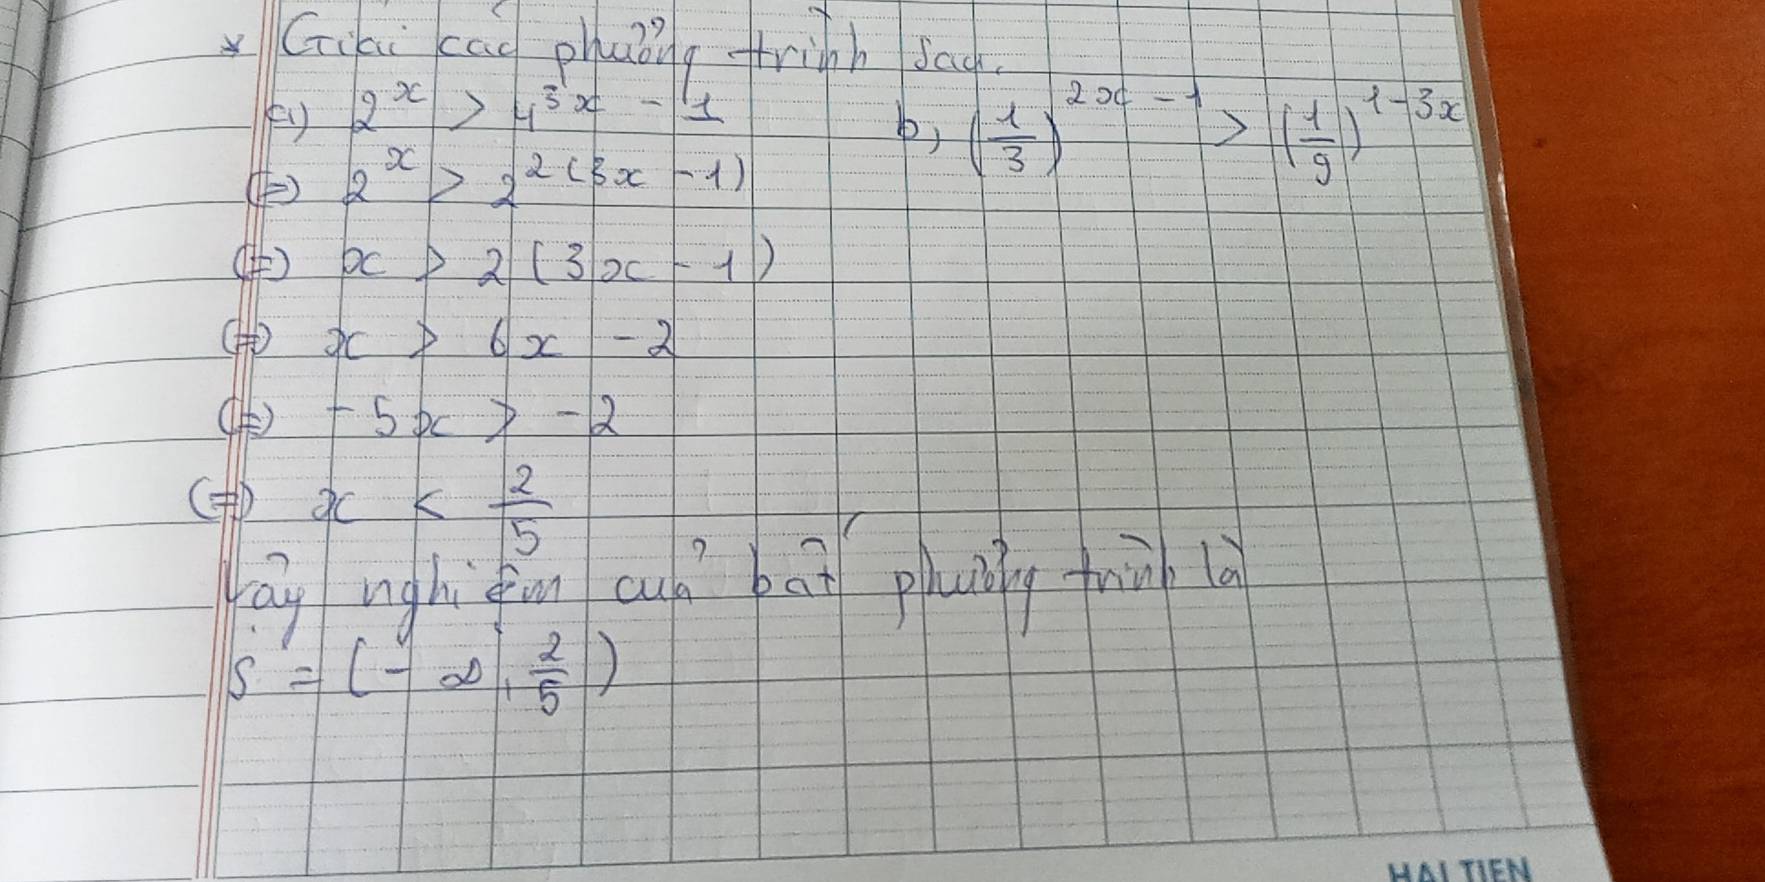 * Giải các phương trình sau.
a) 2^x > 4^{3x - 1}
b, (1/3)^{2x - 1} > (1/9)^{1 - 3x}
(=) 2^x > 2^{2(3x - 1)}
(=) x > 2(3x - 1)
(=) x > 6x - 2
(=) -5x > -2
(=) x < 2/5
Vậy nghiệm của bất phương trình là
S = (-∞, 2/5)
HẢI TIẾN